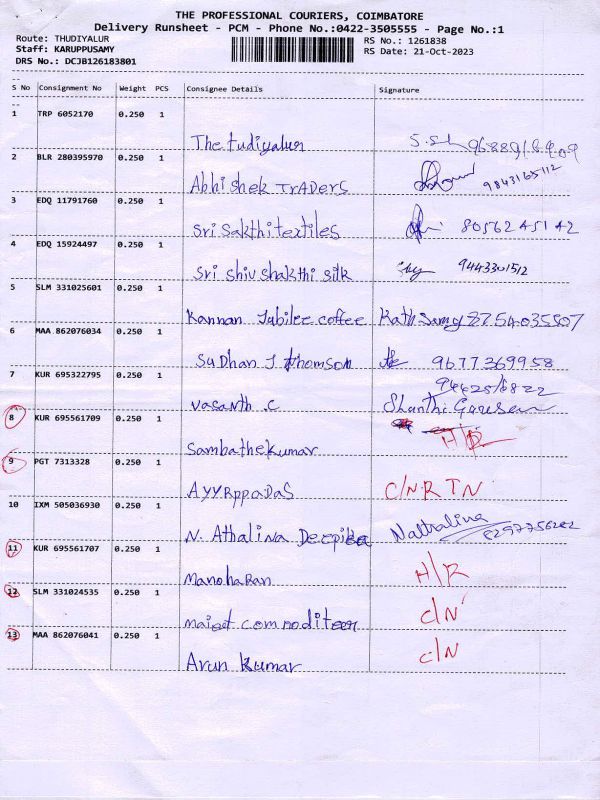 THE PROFESSIONAL COURIERS, COIMBATORE
Delivery Runsheet - PCM - Phone No.:0422-3505555 - Page No.:1
Route: THUDIYALUR RS No.: 1261838
Staff: KARUPPUSAMY RS Date: 21-Oct-2023
DRS No.: DCJB126183801
S No Consignment No Weight PCS Consignee Details Signature
1 TRP 6052170 0.250 1
The tudiyalur
2 BLR 280395970 0.250 1
Abhishek TrADers 9843165112
3 EDQ 11791760 0.250 1
Sri Sakthi textiles 80562 45142
4 EDQ 15924497 0.250 1
Sri Shiv Shakthi Silk 9443301512
5 SLM 331025601 0.250 1
Kannan Jubilee coffee
6 MAA 862076034 0.250 1
Sudhan J thomson 9677369958
7 KUR 695322795 0.250 1
Vasanth .C Shanthi
8 KUR 695561709 0.250 1
H/R
Sambathekumar
9 PGT 7313328 0.250 1
AYYRppaDaS C/N RTN
10 IXM 505036930 0.250 1
N. Athalina Deepika Nathalina
11 KUR 695561707 0.250 1
Manoharan H/R
12 SLM 331024535 0.250 1
C/N
13 MAA 862076041 0.250 1
Arun Kumar C/N